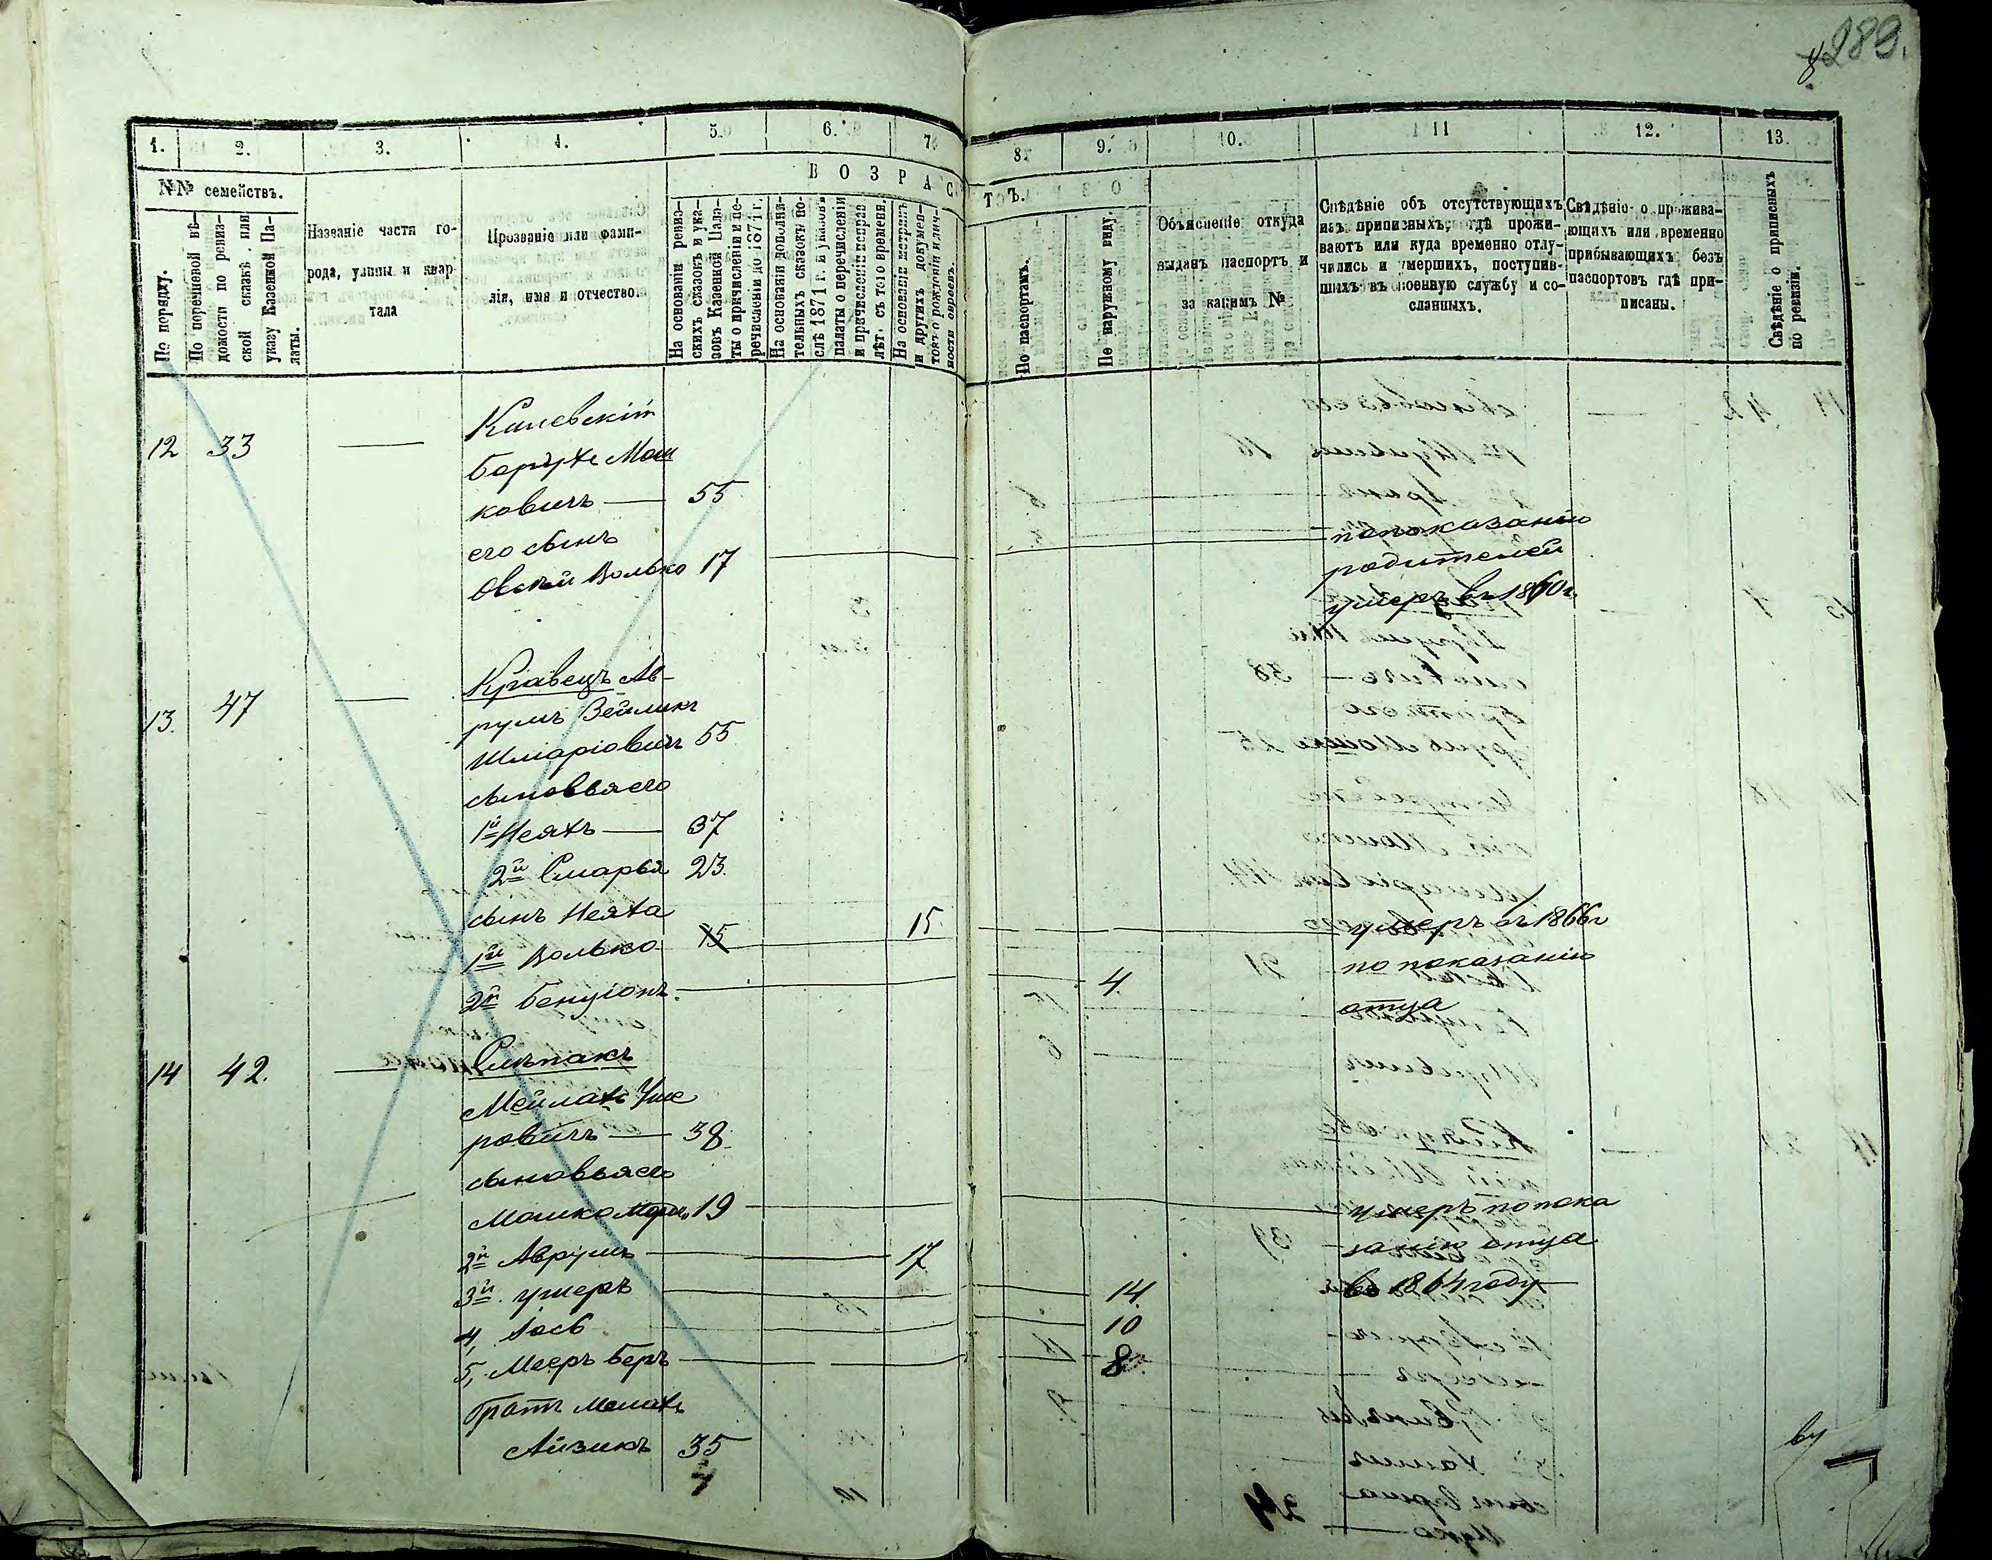 289.
8
1. 2. 3. 4. 5. 6. 7. 8. 9. 10. 11 12. 13.
№№ семействъ.
ВОЗРАСТЪ.
По порядку.
По перечневой вѣ-
домости по ревиз-
ской сказкѣ или
указу Казенной Па-
латы.
Названіе части го-
рода, улицы и квар-
тала
Прозваніе или фами-
лія, имя и отчество.
На основаніи ревиз-
скихъ сказокъ и ука-
зовъ Казенной Пала-
ты о причисленіи и пе-
речисленіи до 1871 г.
На основаніи дополни-
тельныхъ сказокъ по-
слѣ 1871 г. и указовъ
палаты о перечисленіи
и причисленіи
лѣт. съ того времени.
На основаніи метрикъ
и другихъ докумен-
товъ о рожденіи и лич-
ности евреевъ.
По паспортамъ.
По наружному виду.
Объясненіе откуда
выданъ паспортъ и
за какимъ №
Свѣдѣніе объ отсутствующихъ
изъ приписныхъ, гдѣ прожи-
ваютъ или куда временно отлу-
чились и умершихъ, поступив-
шихъ въ военную службу и со-
сланныхъ.
Свѣдѣніе о прожива-
ющихъ или временно
прибывающихъ безъ
паспортовъ гдѣ при-
писаны.
Свѣдѣніе о приписныхъ
по ревизіи.
12 33 —
Килевскій
Борухъ Мош
ковичъ — 55
его сынъ
Овсей Волько 17
по показанію
родителей
умеръ въ 1860 г.
13. 47 —
Кравецъ Ав-
румъ Зейликъ
Шмаріовичъ 55
сыновья его
1й Неяхъ — 37
2й Смарья 23.
сынъ Неяха
1й Волько 15 — 15 — умеръ въ 1866 г
по показанію
2й Бенціонъ — 4.
отца
14 42. —
Слѣпакъ
Мейлахъ Уше
ровичъ — 38
сыновья его
Мошко 19 — умеръ по пока
занію отца
2й Аврумъ — 17
3й Ушеръ — 14.
въ 1864 году
4, Іось — 10
5, Мееръ Беръ — 8
братъ Мелаха
Айзикъ 35